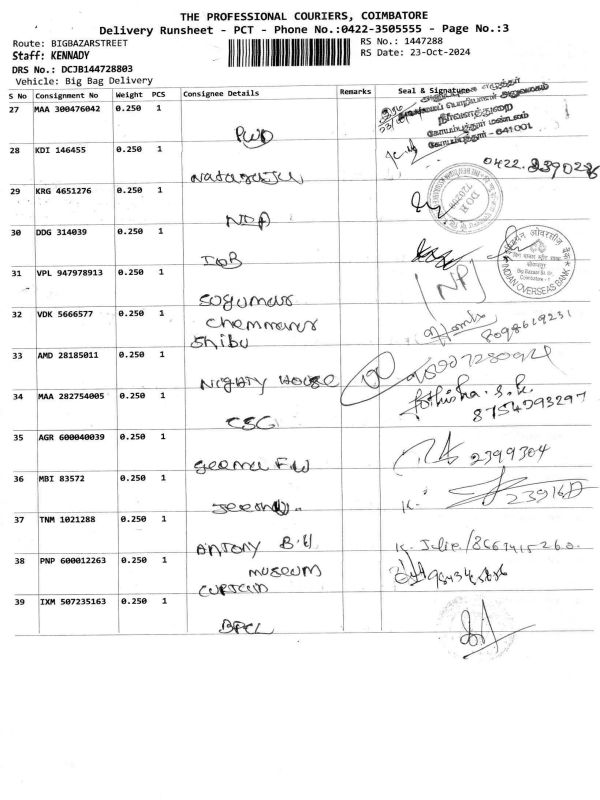 THE PROFESSIONAL COURIERS, COIMBATORE
Delivery Runsheet - PCT - Phone No.:0422-3505555 - Page No.:3
Route: BIGBAZARSTREET
RS No.: 1447288
Staff: KENNADY
RS Date: 23-Oct-2024
DRS No.: DCJB144728803
Vehicle: Big Bag Delivery
S No Consignment No Weight PCS Consignee Details Remarks Seal & Signature
27 MAA 300476042 0.250 1
PWD
நீர்வளத்துறை
கோயம்புத்தூர் மண்டலம்
கோயம்புத்தூர் - 641001
28 KDI 146455 0.250 1
Nataraju
0422.
29 KRG 4651276 0.250 1
NDA
30 DDG 314039 0.250 1
IOB
INDIAN OVERSEAS BANK
Big Bazaar St. Br.
31 VPL 947978913 0.250 1
Sugumar
NP
32 VDK 5666577 0.250 1
Chemmanur
Shibu
8098619231
33 AMD 28185011 0.250 1
NIGHTY HOUSE
34 MAA 282754005 0.250 1
CSG
8754093297
35 AGR 600040039 0.250 1
2399304
36 MBI 83572 0.250 1
K.
37 TNM 1021288 0.250 1
ANTONY B.H
K. Julie /
38 PNP 600012263 0.250 1
museum
CURTAIN
39 IXM 507235163 0.250 1
BPCL